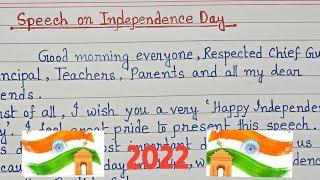 Speech on Independence Day
Good morning everyone, Respected Chief Gu
incipal, Teachers, Parents and all my dear
ends.
rst of all, I wish you a very 'Happy Independen
y'. I feel great pride to present this speech.
most important us
day
2022